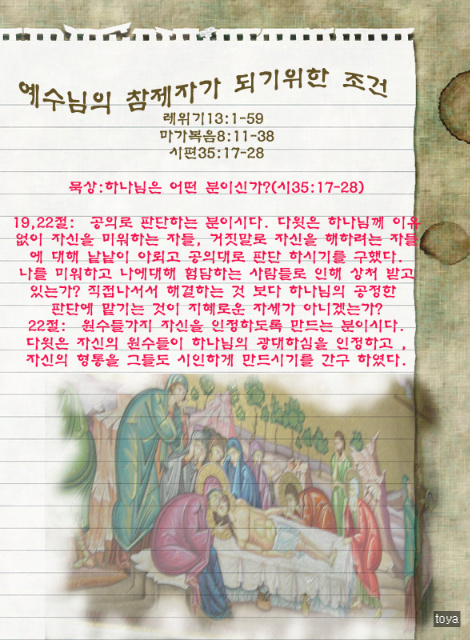 예수님의 참제자가 되기위한 조건
레위기13:1-59
마가복음8:11-38
시편35:17-28
묵상:하나님은 어떤 분이신가?(시35:17-28)
19,22절: 공의로 판단하는 분이시다. 다윗은 하나님께 이유
없이 자신을 미워하는 자들, 거짓말로 자신을 해하려는 자들
에 대해 낱낱이 아뢰고 공의대로 판단 하시기를 구했다.
나를 미워하고 나에대해 험담하는 사람들로 인해 상처 받고
있는가? 직접나서서 해결하는 것 보다 하나님의 공정한
판단에 맡기는 것이 지혜로운 자세가 아니겠는가?
22절: 원수들까지 자신을 인정하도록 만드는 분이시다.
다윗은 자신의 원수들이 하나님의 광대하심을 인정하고 ,
자신의 형통을 그들도 시인하게 만드시기를 간구 하였다.
toya